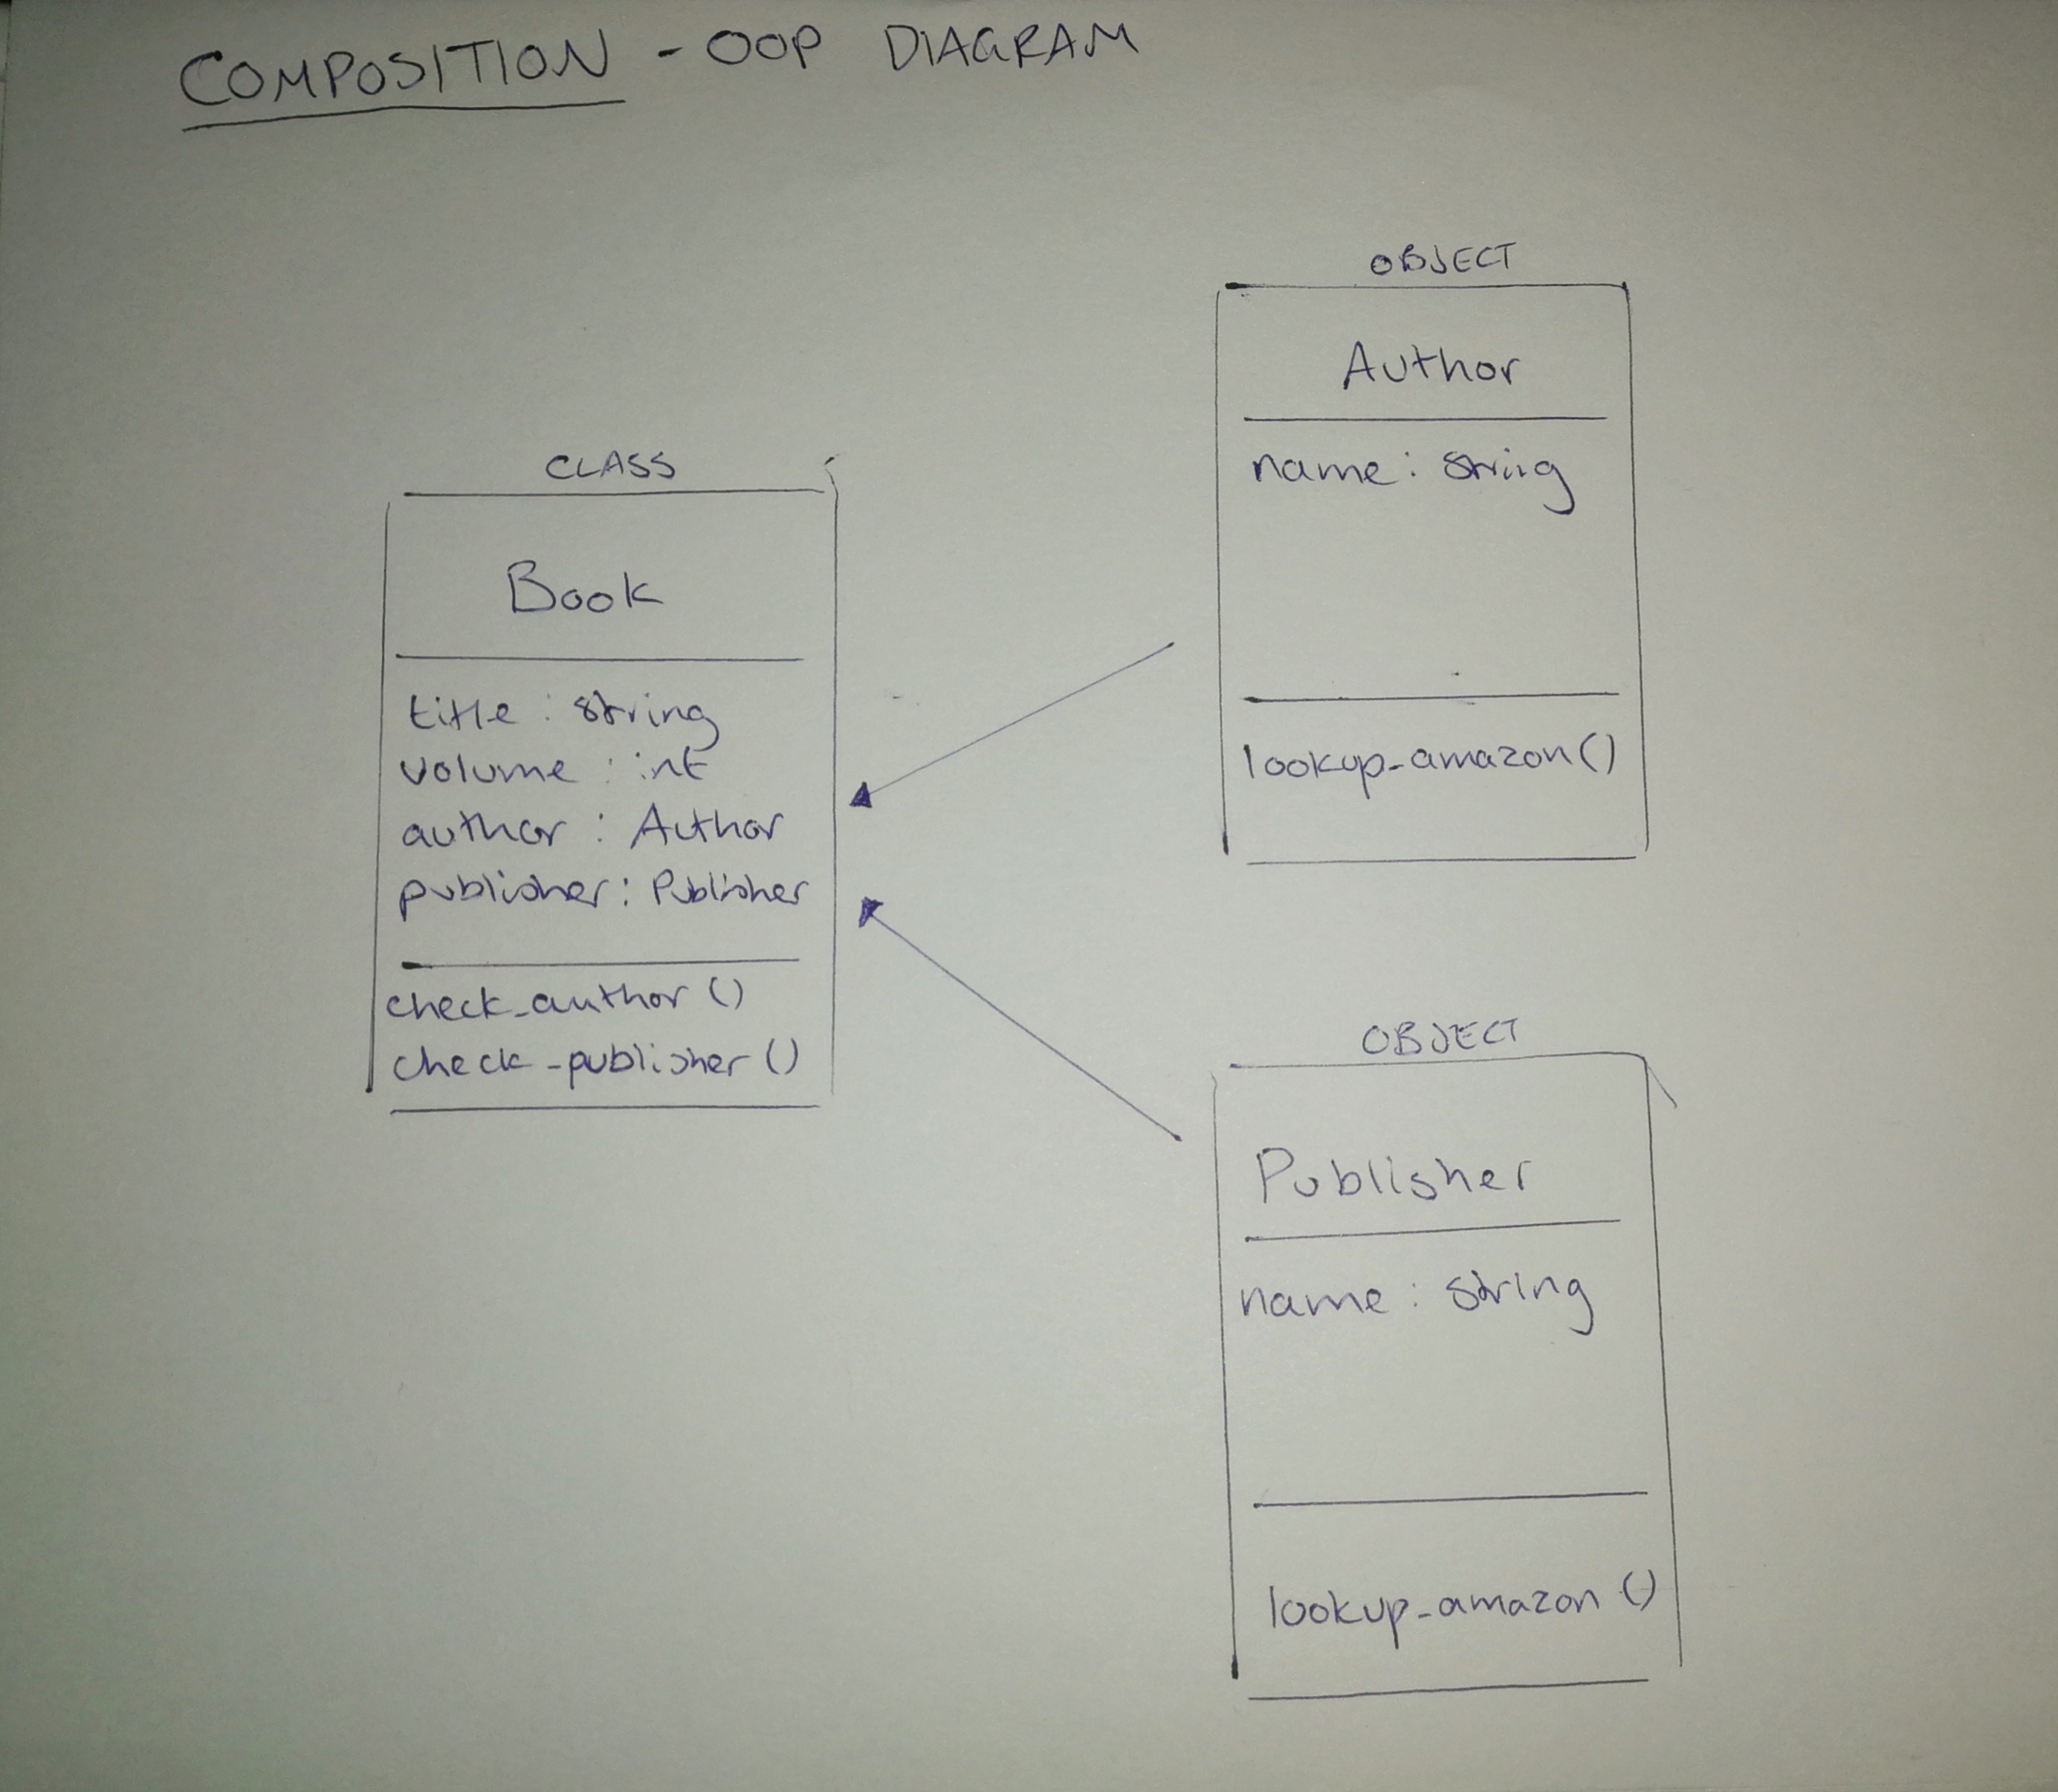 COMPOSITION - OOP DIAGRAM
CLASS
Book
title : string
volume : int
author : Author
publisher : Publisher
check_author ()
check_publisher ()
OBJECT
Author
name : string
lookup_amazon()
OBJECT
Publisher
name : string
lookup_amazon ()